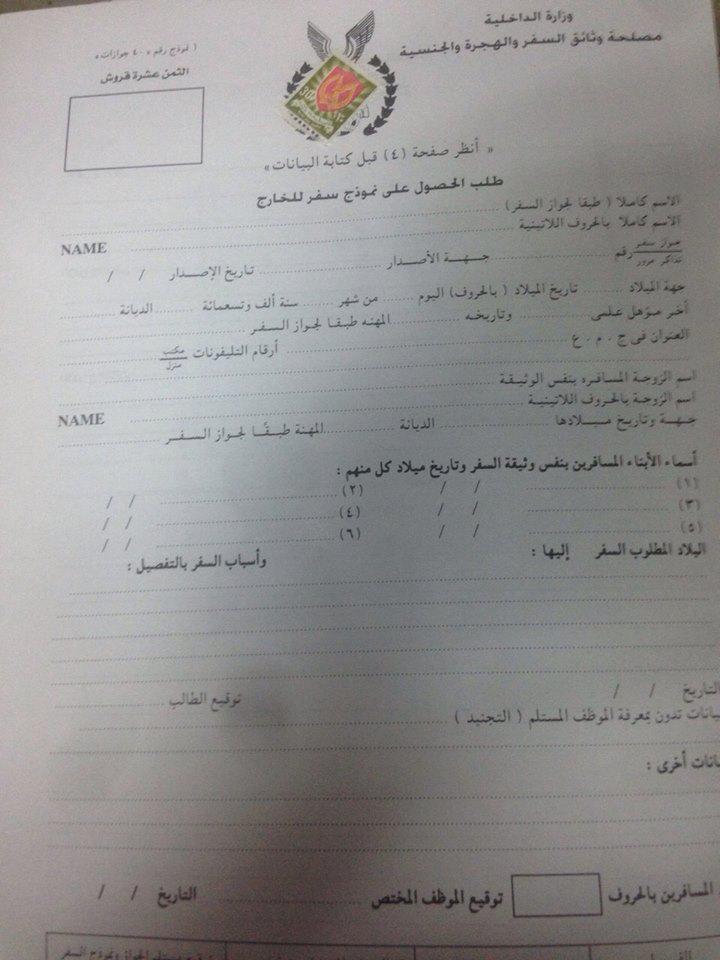 وزارة الداخلية
مصلحة وثائق السفر والهجرة والجنسية
( نموذج رقم « ٤٠ جوازات »
الثمن عشرة قروش
« أنظر صفحة (٤) قبل كتابة البيانات»
طلب الحصول على نموذج سفر للخارج
الاسم كاملا ( طبقا لجواز السفر)
الاسم كاملا بالحروف اللاتينية NAME
جواز سفر
تذاكر مرور
رقم جهة الأصدار تاريخ الإصدار / /
جهة الميلاد تاريخ الميلاد ( بالحروف) اليوم من شهر سنة ألف وتسعمائة الديانة
أخر مؤهل علمى وتاريخه المهنه طبقا لجواز السفر
العنوان فى ج . م . ع أرقام التليفونات مكتب
منزل
اسم الزوجة المسافره بنفس الوثيقة
اسم الزوجة بالحروف اللاتينية NAME
جهة وتاريخ ميلادها الديانة المهنة طبقًا لجواز السفر
أسماء الأبناء المسافرين بنفس وثيقة السفر وتاريخ ميلاد كل منهم :
(١) / / (٢) / /
(٣) / / (٤) / /
(٥) / / (٦) / /
البلاد المطلوب السفر إليها : وأسباب السفر بالتفصيل :
التاريخ / / توقيع الطالب
يانات تدون بمعرفة الموظف المستلم ( التجنيد )
انات أخرى :
المسافرين بالحروف توقيع الموظف المختص التاريخ / /